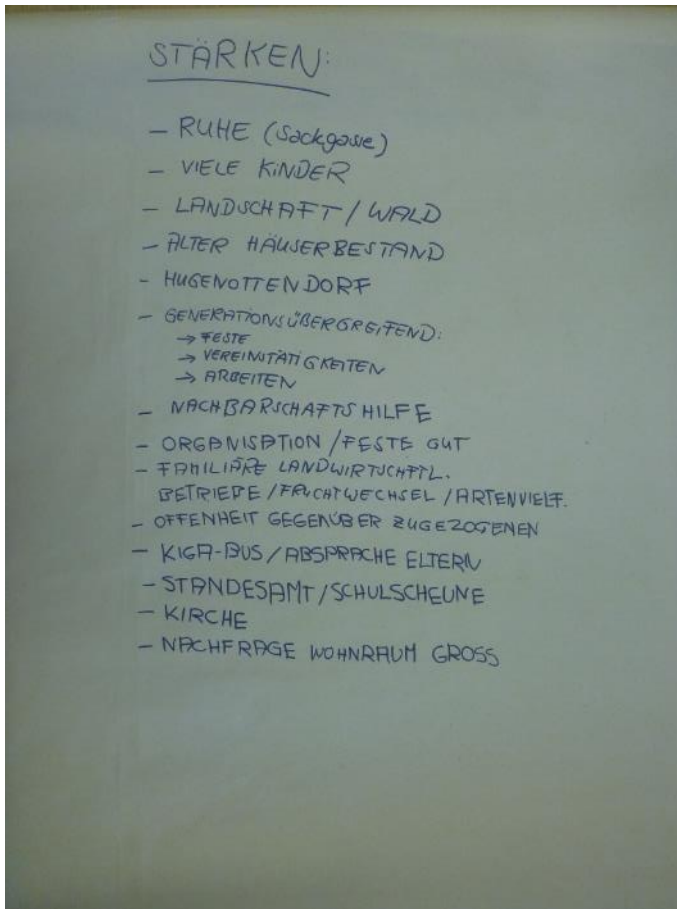 STÄRKEN:
- RUHE (Sackgasse)
- VIELE KINDER
- LANDSCHAFT / WALD
- ALTER HÄUSERBESTAND
- HUGENOTTENDORF
- GENERATIONSÜBERGREIFEND:
→ FESTE
→ VEREINSTÄTIGKEITEN
→ ARBEITEN
- NACHBARSCHAFTSHILFE
- ORGANISATION / FESTE GUT
- FAMILIÄRE LANDWIRTSCHFTL.
BETRIEBE / FRUCHTWECHSEL / ARTENVIELF.
- OFFENHEIT GEGENÜBER ZUGEZOGENEN
- KIGA-BUS / ABSPRACHE ELTERN
- STANDESAMT / SCHULSCHEUNE
- KIRCHE
- NACHFRAGE WOHNRAUM GROSS